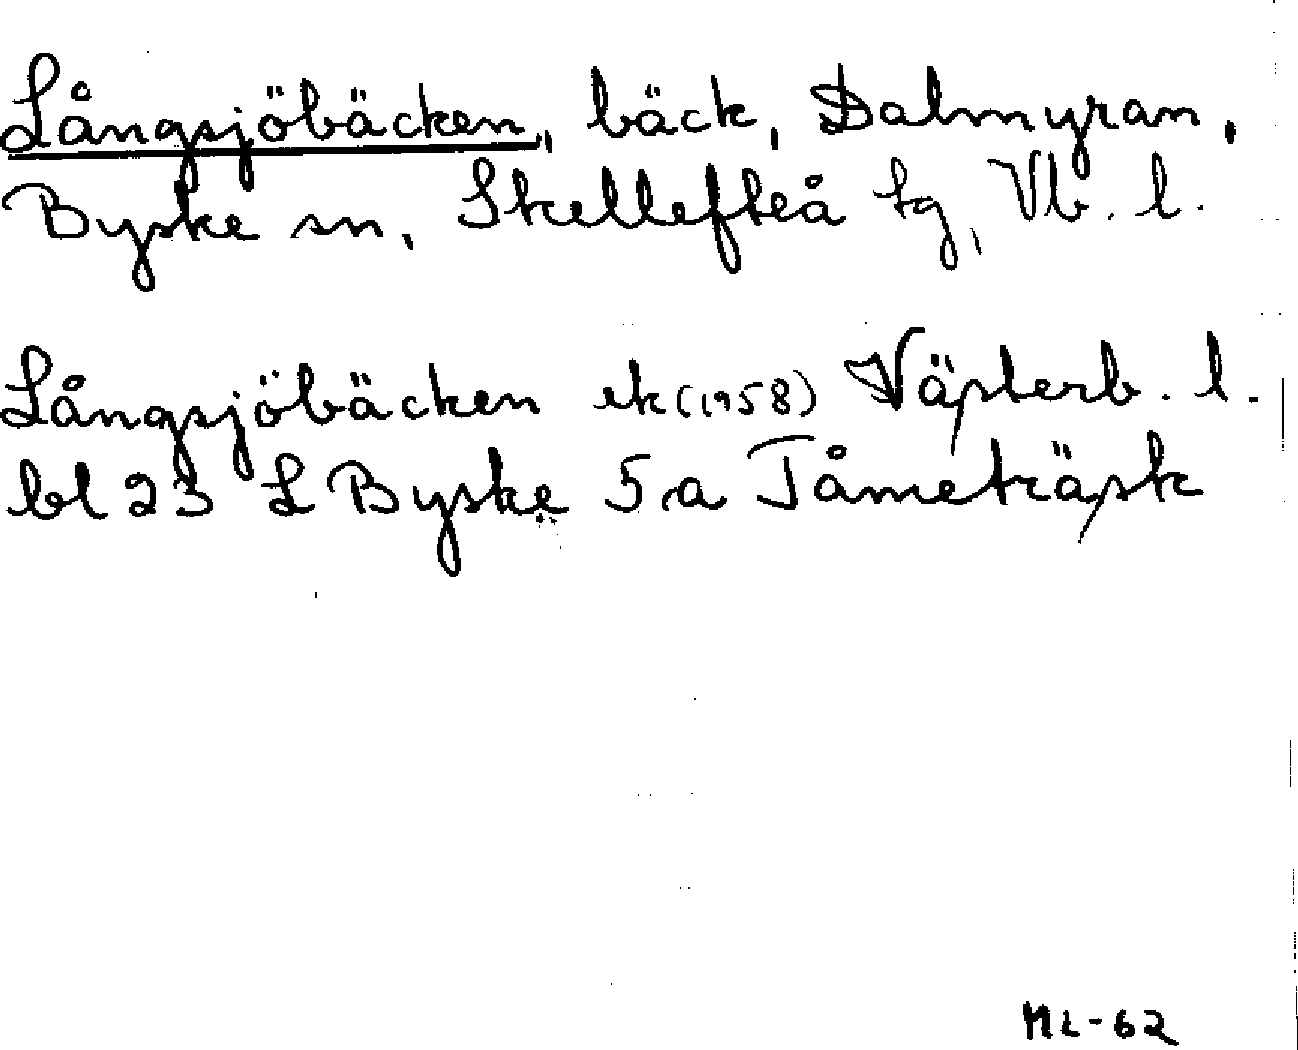 Långsjöbäcken, bäck, Dalmyran,
Byske sn, Skellefteå tg, Vb. l.
Långsjöbäcken ek (1958) Västerb. l.
bl 23 L Byske 5 a Tåmeträsk
ML-62